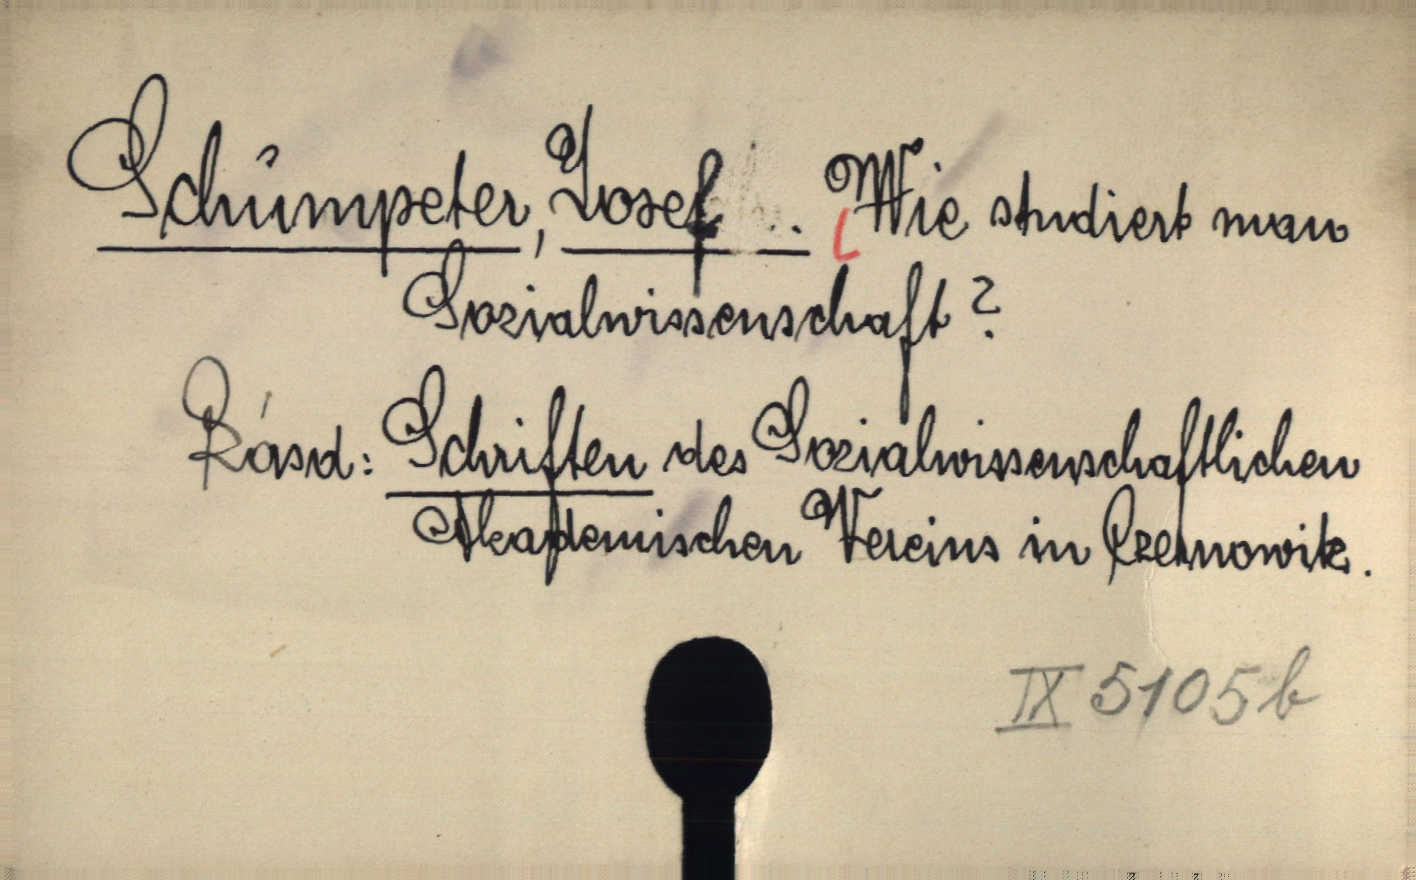 Schumpeter, Josef .. Wie studiert man
Sozialwissenschaft?
Rásd: Schriften des Sozialwissenschaftlichen
Akademischen Vereins in Czernowitz.
IX 5105 b